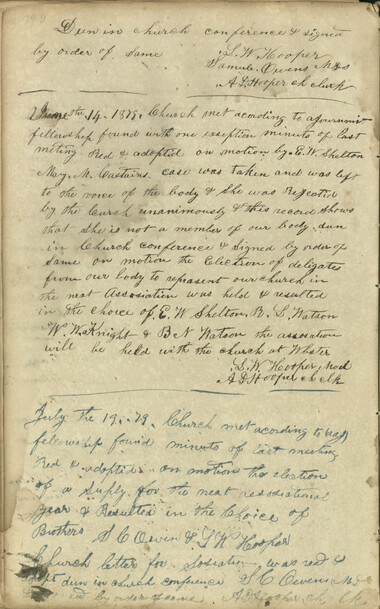 Dun in church conference & signed
by order of same L. W. Hooper
Samul. Owens Mod
A J Hooper ch clerk
June the 14. 1879. Church met acording to
fellowship found with one exseption minuts of last
meting Red & adopted on motion by. E. W. Shelton
May. M. case was taken and was left
to the voice of the body & she was Rejected
by the Curch unanimously & this record shows
that she is not a member of our body. dun
in Church conference & Signed by order of
Same on motion the Election of deligates
from our body to represent our church in
the next Association was held & resulted
in the choice of E W Shelton. R. L. Watson
W. W. Knight & B N Watson the association
will be held with the church at
L. W Hooper, Mod
A J Hooper ch clk
July the 19. 79. Church met acording to
fellowship found minuts of last meeting
Red & adopted on motion the election
of a Suply for the next associational
year & Resulted in the Choice of
Brothers S C Owen & L W Hooper
Church letter for was red &
dun in church conference S C Owens Mo
by order of same A J Hooper ch clk